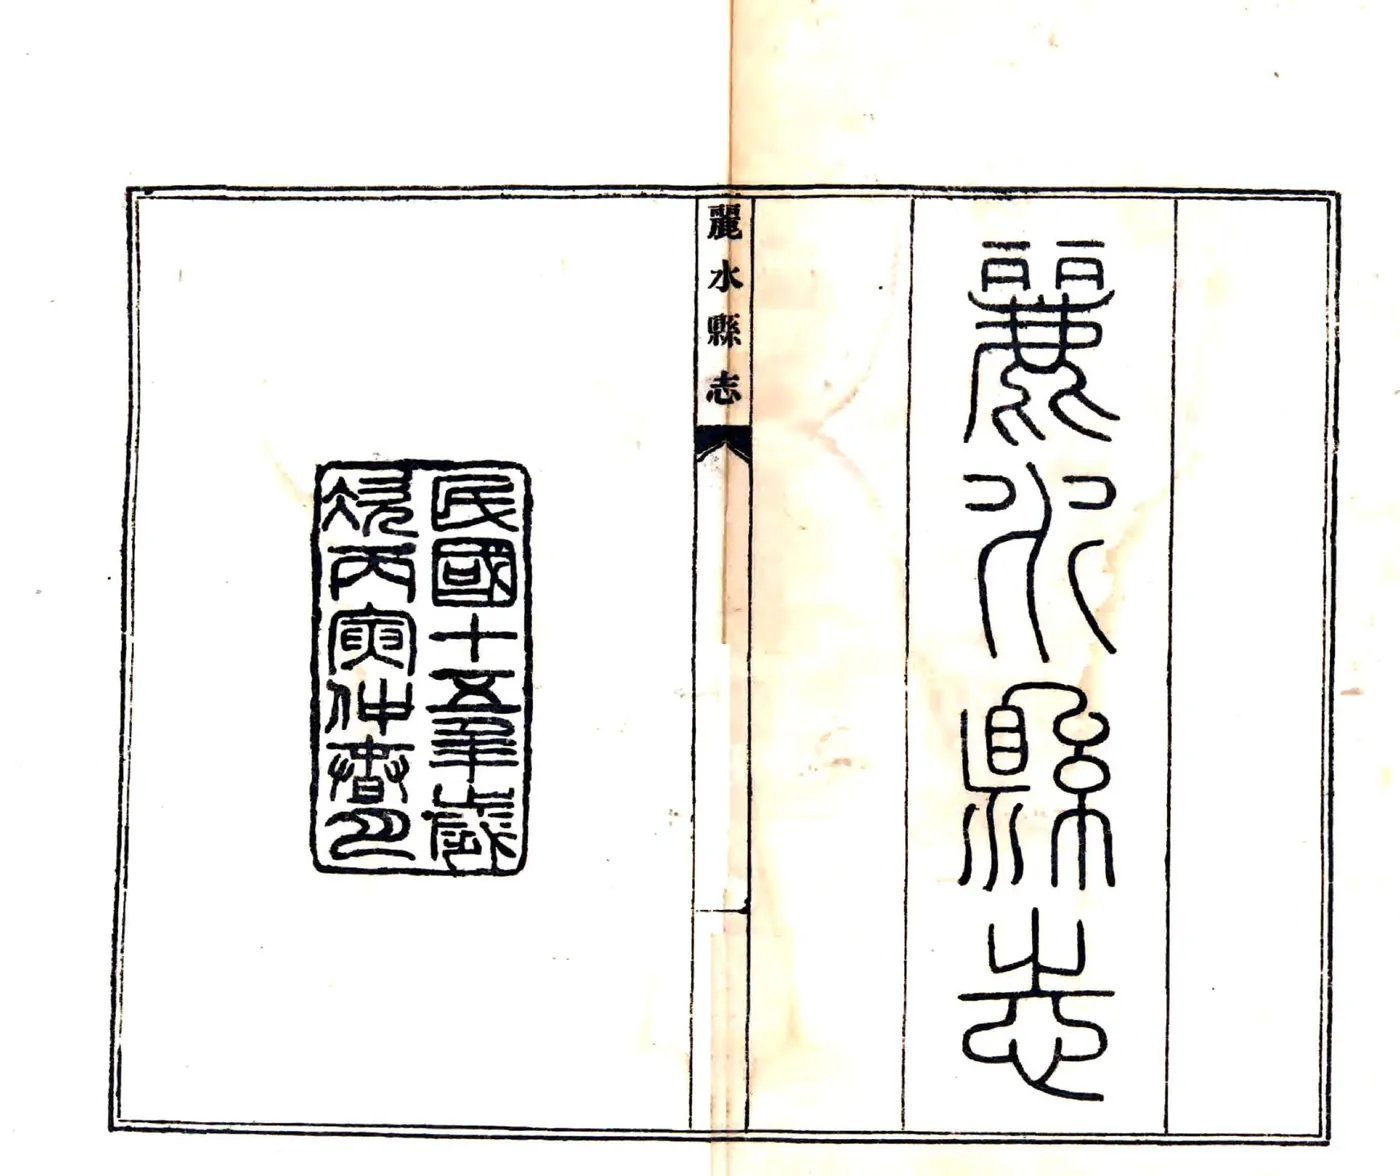 麗水縣志
麗水縣志
民國十五年歲
次丙寅仲春月